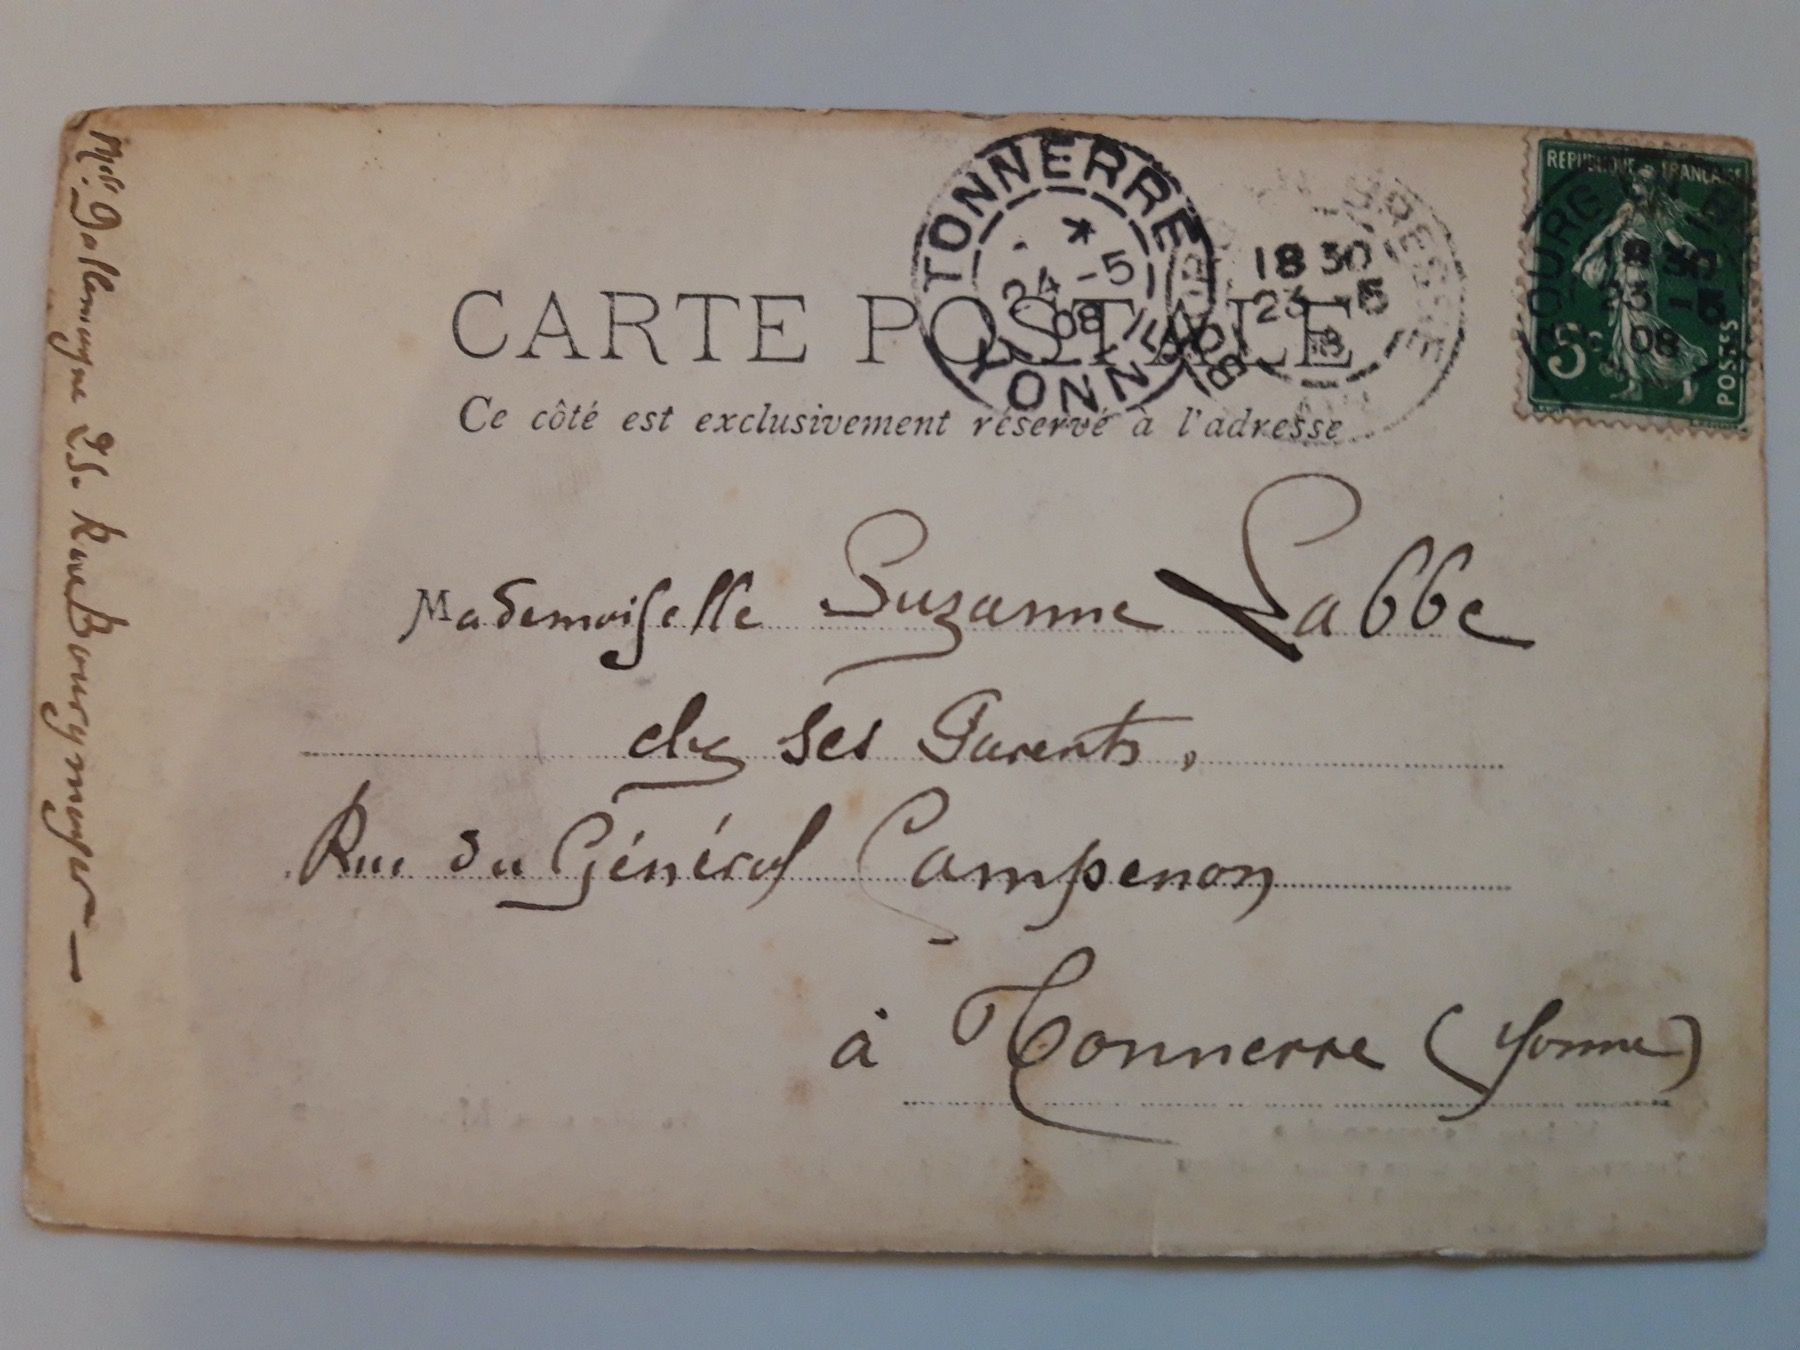 CARTE POSTALE
Ce côté est exclusivement réservé à l'adresse
TONNERRE
24 -5
08
YONNE
18 30
23 -5
REPUBLIQUE FRANÇAISE
18 30
23 -5
08
5c
POSTES
Mademoiselle Suzanne Labbe
chez ses Parents,
Rue du Général Campenon
à Tonnerre (Yonne)
Dallemagne 25. Rue